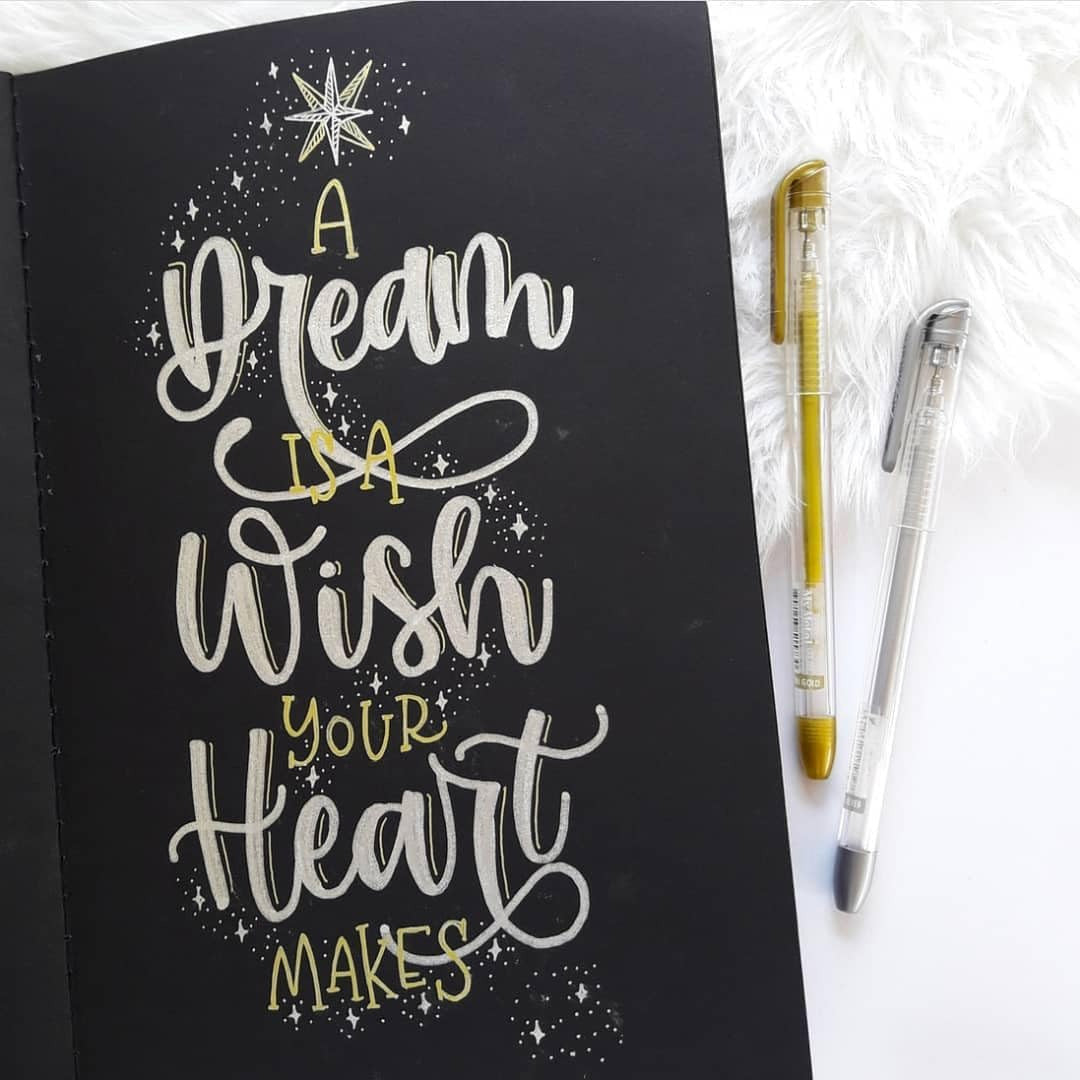 A
Dream
IS A
Wish
YOUR
Heart
MAKES
GOLD